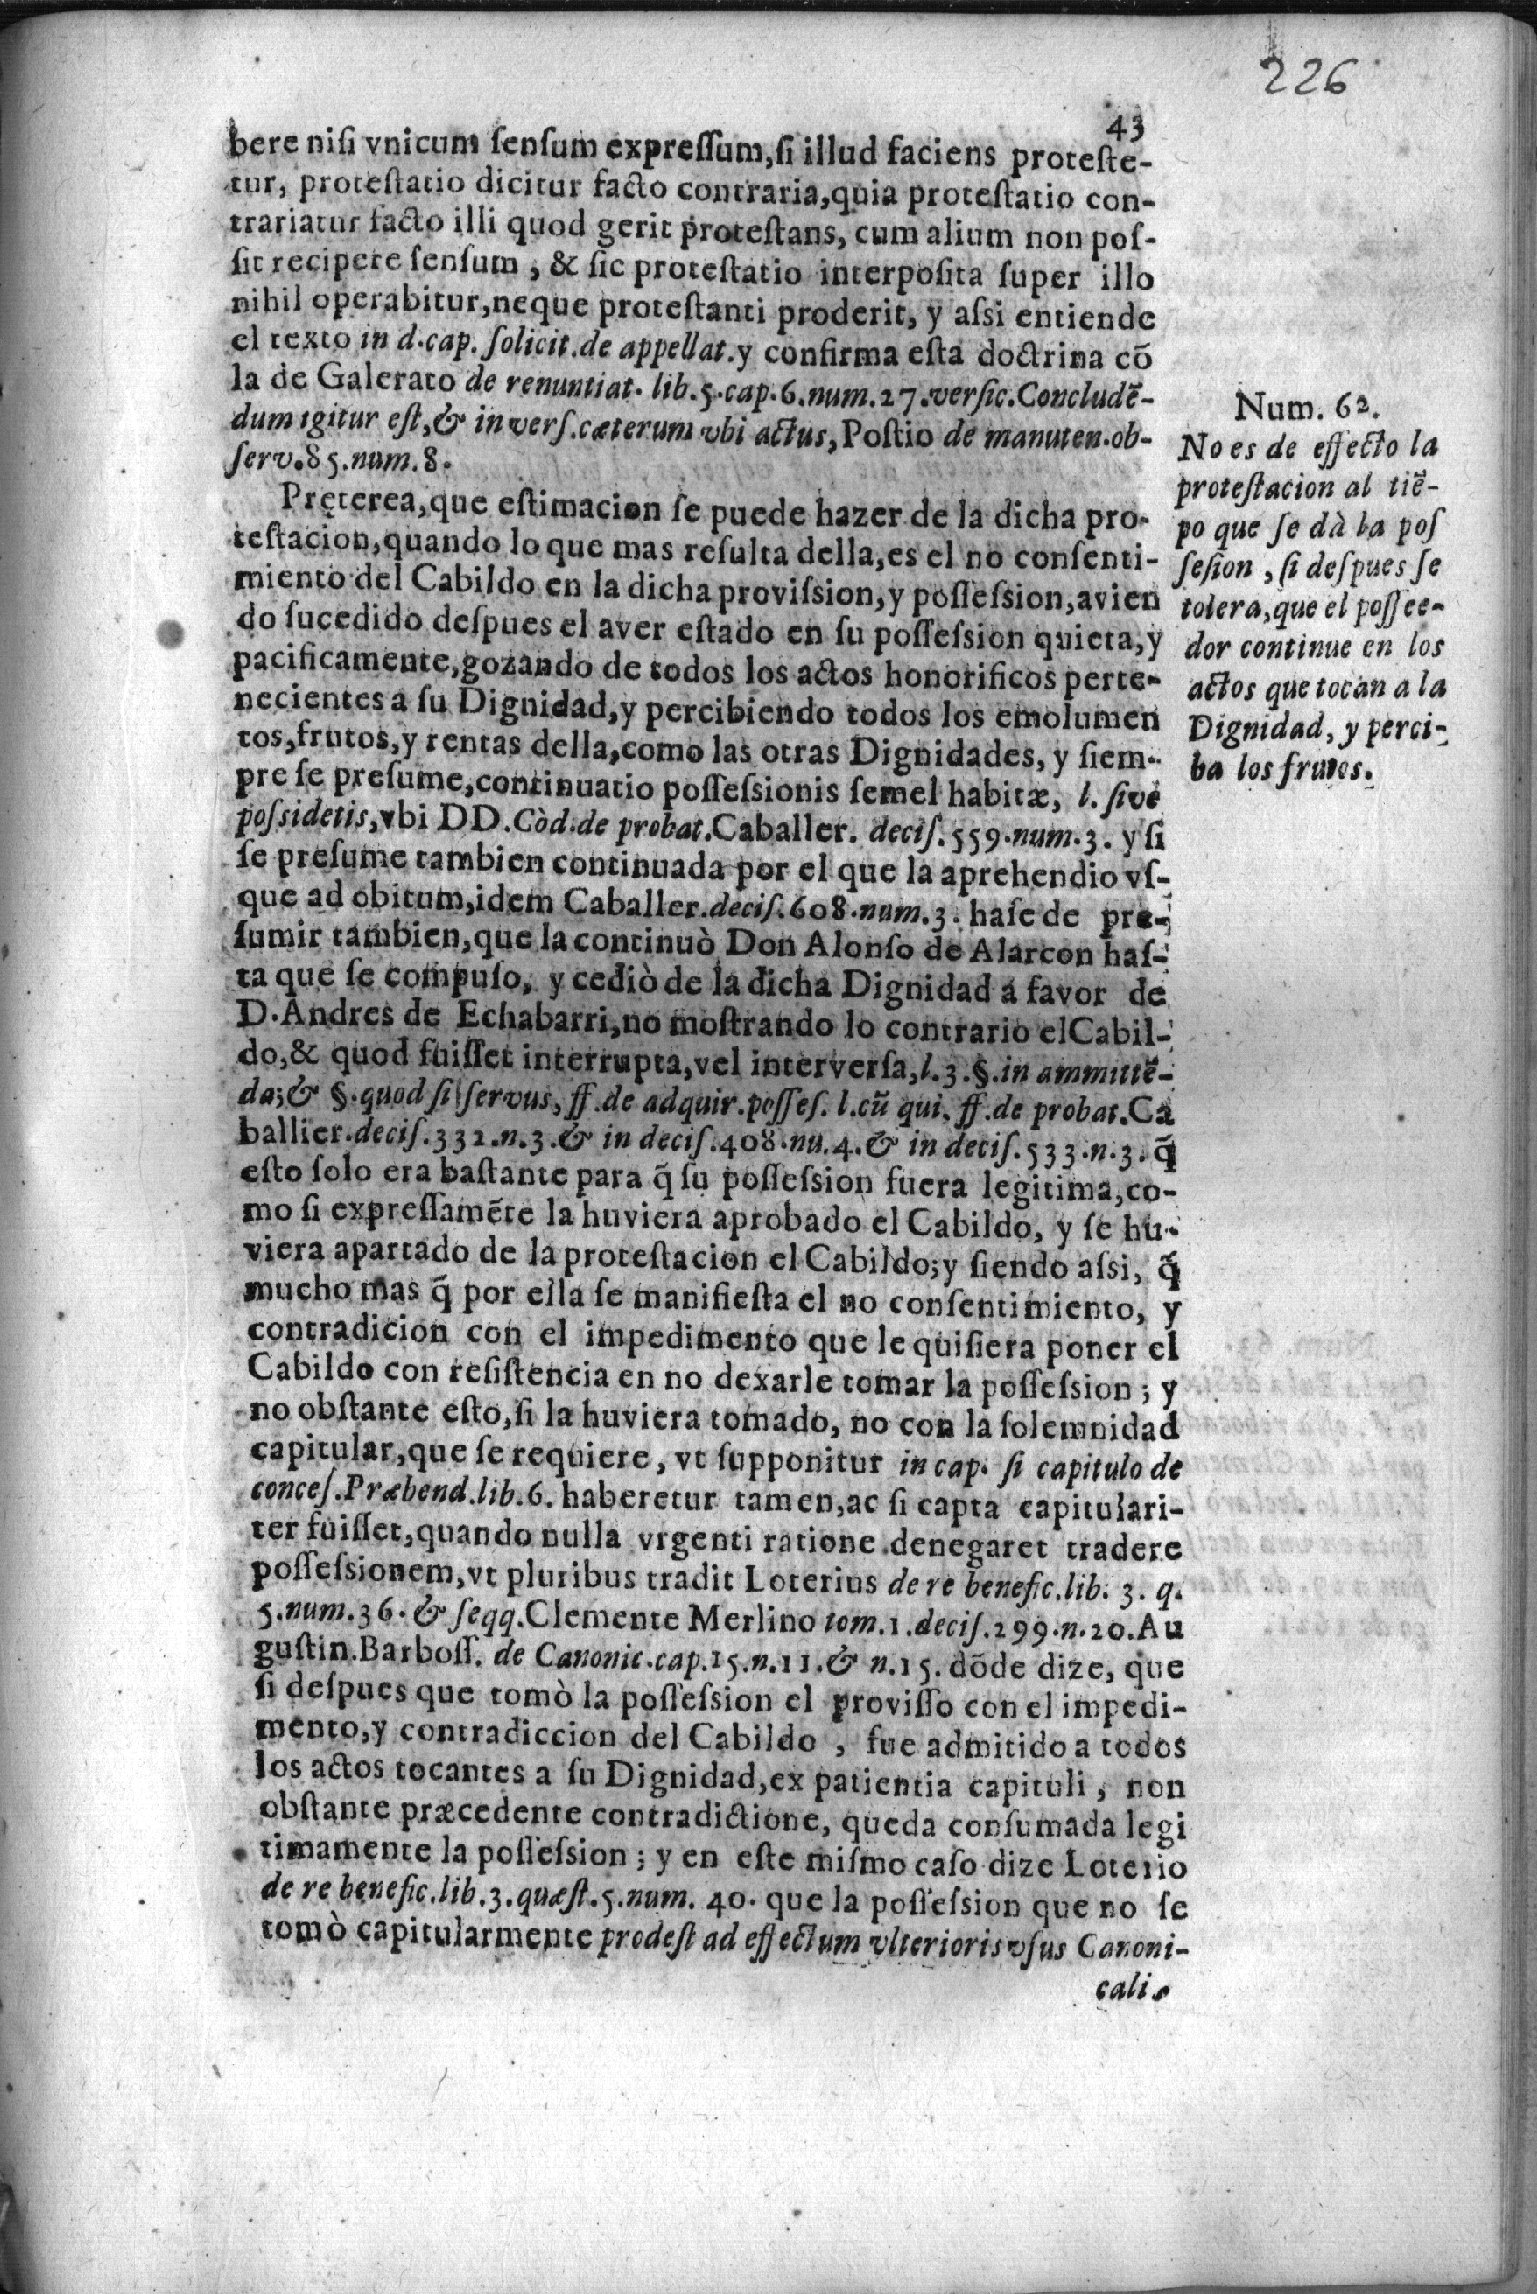 226
43
bere nisi vnicum sensum expressum, si illud faciens proteste-
tur, protestatio dicitur facto contraria, quia protestatio con-
trariatur facto illi quod gerit protestans, cum alium non pos-
sit recipere sensum, & sic protestatio interposita super illo
nihil operabitur, neque protestanti proderit, y assi entiende
el texto in d. cap. solicit. de appellat. y confirma esta doctrina cō
la de Galerato de renuntiat. lib. 5. cap. 6. num. 27. versic. Concludē-
dum igitur est, & in vers. cæterum vbi actus, Postio de manuten. ob-
serv. 85. num. 8.
Pręterea, que estimacion se puede hazer de la dicha pro-
testacion, quando lo que mas resulta della, es el no consenti-
miento del Cabildo en la dicha provission, y possession, avien
do sucedido despues el aver estado en su possession quieta, y
pacificamente, gozando de todos los actos honorificos perte-
necientes a su Dignidad, y percibiendo todos los emolumen
tos, frutos, y rentas della, como las otras Dignidades, y siem-
pre se presume, continuatio possessionis semel habitæ, l. sive
possidetis, vbi DD. Còd. de probat. Caballer. decis. 559. num. 3. y si
se presume tambien continuada por el que la aprehendio vs-
que ad obitum, idem Caballer. decis. 608. num. 3. hase de pre-
sumir tambien, que la continuò Don Alonso de Alarcon has-
ta que se compuso, y cediò de la dicha Dignidad a favor de
D. Andres de Echabarri, no mostrando lo contrario el Cabil-
do, & quod fuisset interrupta, vel interversa, l. 3. §. in ammittē-
da; & §. quod si servus, ff. de adquir. posses. l. cū qui, ff. de probat. Ca
ballier. decis. 332. n. 3. & in decis. 408. nu. 4. & in decis. 533. n. 3. q̃
esto solo era bastante para q̃ su possession fuera legitima, co-
mo si expressamẽte la huviera aprobado el Cabildo, y se hu-
viera apartado de la protestacion el Cabildo; y siendo assi, q̃
mucho mas q̃ por ella se manifiesta el no consentimiento, y
contradicion con el impedimento que le quisiera poner el
Cabildo con resistencia en no dexarle tomar la possession; y
no obstante esto, si la huviera tomado, no con la solemnidad
capitular, que se requiere, vt supponitur in cap. si capitulo de
conces. Præbend. lib. 6. haberetur tamen, ac si capta capitulari-
ter fuisset, quando nulla vrgenti ratione denegaret tradere
possessionem, vt pluribus tradit Loterius de re benefic. lib. 3. q.
5. num. 36. & seqq. Clemente Merlino tom. 1. decis. 299. n. 20. Au
gustin. Barboss. de Canonic. cap. 15. n. 11. & n. 15. dōde dize, que
si despues que tomò la possession el provisso con el impedi-
mento, y contradiccion del Cabildo, fue admitido a todos
los actos tocantes a su Dignidad, ex patientia capituli, non
obstante præcedente contradictione, queda consumada legi
timamente la possession; y en este mismo caso dize Loterio
de re benefic. lib. 3. quæst. 5. num. 40. que la possession que no se
tomò capitularmente prodest ad effectum vlterioris vsus Canoni-
calis
Num. 62.
No es de effecto la
protestacion al tiē-
po que se dà la pos
sesion, si despues se
tolera, que el possee-
dor continue en los
actos que tocan a la
Dignidad, y perci-
ba los frutos.